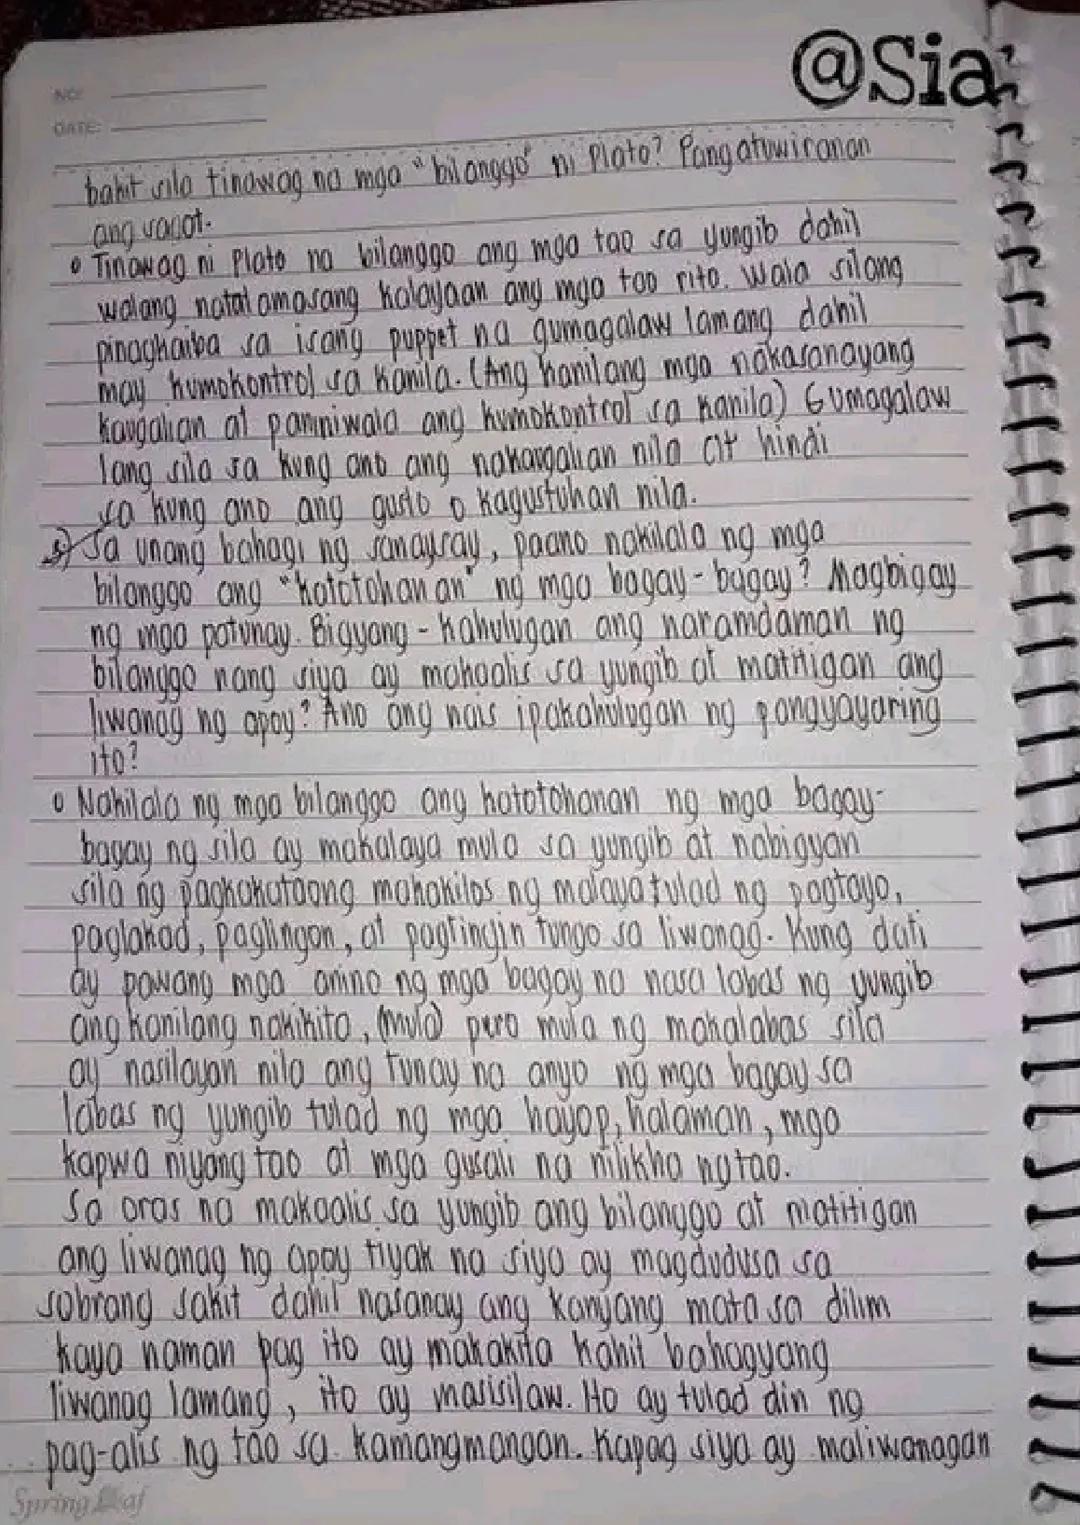 @Sia
NO:
DATE:
bakit sila tinawag na mga "bilanggo" ni Plato? Pangatuwiranan
ang sagot.
Tinawag ni Plato na bilanggo ang mga tao sa yungib dahil
walang natatamasang kalayaan ang mga tao rito. Wala silang
pinagkaiba sa isang puppet na gumagalaw lamang dahil
may kumokontrol sa kanila. (Ang kanilang mga nakasanayang
kaugalian at paniniwala ang kumokontrol sa kanila) Gumagalaw
lang sila sa kung ano ang nakaugalian nila at hindi
sa kung ano ang gusto o kagustuhan nila.
5) Sa unang bahagi ng sanaysay, paano nakilala ng mga
bilanggo ang "katotohanan" ng mga bagay-bagay? Magbigay
ng mga patunay. Bigyang-kahulugan ang naramdaman ng
bilanggo nang siya ay makaalis sa yungib at matitigan ang
liwanag ng apoy? Ano ang nais ipakahulugan ng pangyayaring
ito?
Nakilala ng mga bilanggo ang katotohanan ng mga bagay-
bagay ng sila ay makalaya mula sa yungib at nabigyan
sila ng pagkakataong makakilos ng malaya tulad ng pagtayo,
paglakad, paglingon, at pagtingin tungo sa liwanag. Kung dati
ay pawang mga anino ng mga bagay na nasa labas ng yungib
ang kanilang nakikita, (mula) pero mula ng makalabas sila
ay nasilayan nila ang tunay na anyo ng mga bagay sa
labas ng yungib tulad ng mga hayop, halaman, mga
kapwa niyang tao at mga gusali na nilikha ng tao.
Sa oras na makaalis sa yungib ang bilanggo at matitigan
ang liwanag ng apoy tiyak na siya ay magdudusa sa
sobrang sakit dahil nasanay ang kanyang mata sa dilim
kaya naman pag ito ay makakita kahit bahagyang
liwanag lamang, ito ay masisilaw. Ito ay tulad din ng
pag-alis ng tao sa kamangmangan. Kapag siya ay maliwanagan
Spring Leaf